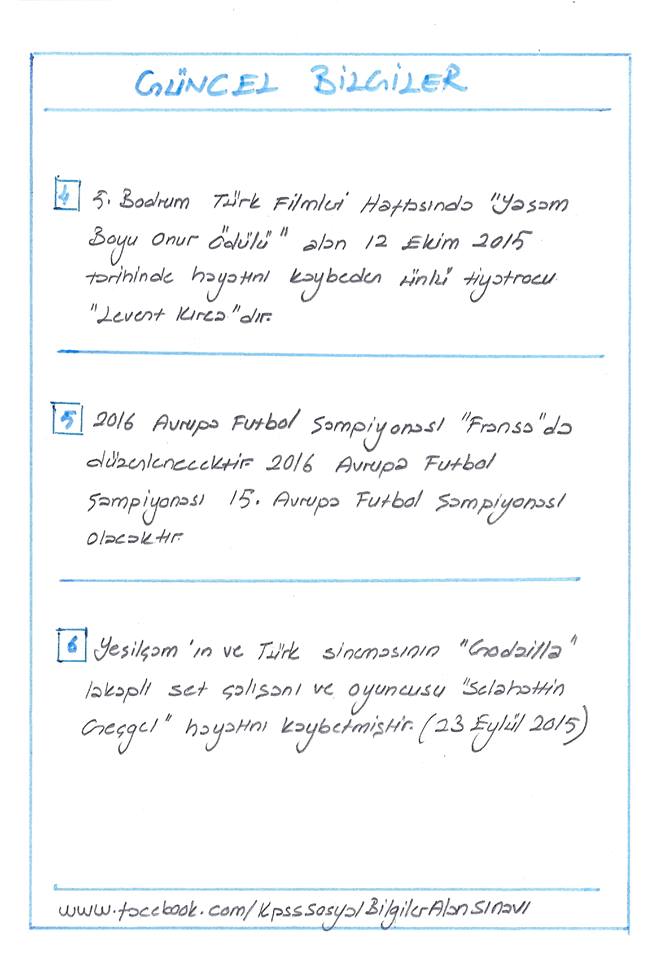 GÜNCEL BİLGİLER
4 5. Bodrum Türk Filmleri Haftasında "Yaşam
Boyu Onur Ödülü" alan 12 Ekim 2015
tarihinde hayatını kaybeden ünlü tiyatrocu
"Levent Kırca"dır.
5 2016 Avrupa Futbol Şampiyonası "Fransa"da
düzenlenecektir. 2016 Avrupa Futbol
Şampiyonası 15. Avrupa Futbol Şampiyonası
olacaktır.
6 Yeşilçam'ın ve Türk sinemasının "Godzilla"
lakaplı set çalışanı ve oyuncusu "Selahattin
Geçgel" hayatını kaybetmiştir. (23 Eylül 2015)
www.facebook.com/KpssSosyalBilgilerAlanSınavı